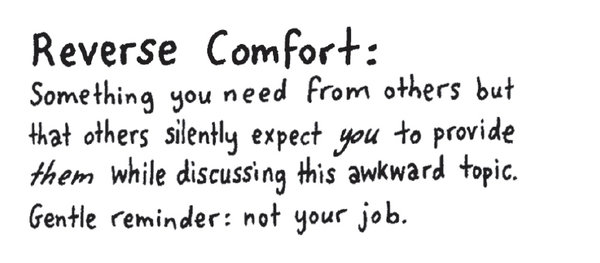 Reverse Comfort:
Something you need from others but
that others silently expect you to provide
them while discussing this awkward topic.
Gentle reminder: not your job.